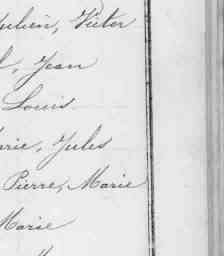 Julien, Victor
l, Jean
Louis
arie, Jules
Pierre, Marie
Marie